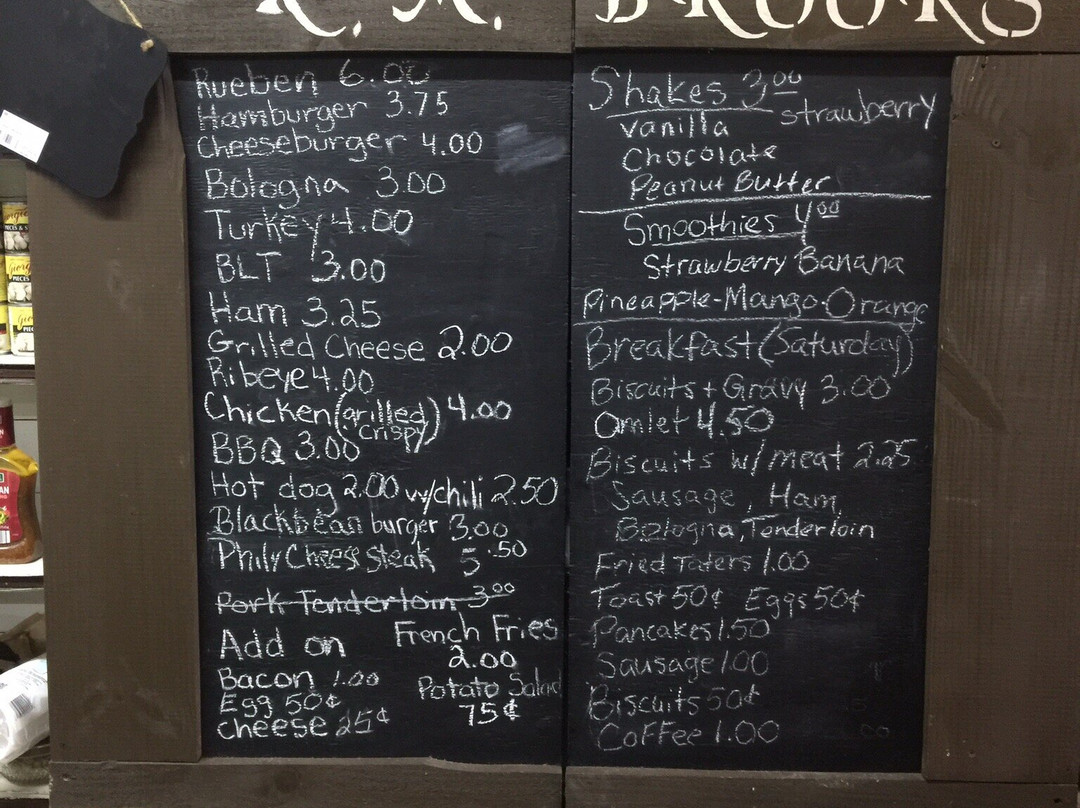 R. M. BROOKS
Rueben 6.00
Hamburger 3.75
Cheeseburger 4.00
Bologna 3.00
Turkey 4.00
BLT 3.00
Ham 3.25
Grilled Cheese 2.00
Ribeye 4.00
Chicken (grilled crispy) 4.00
BBQ 3.00
Hot dog 2.00 w/chili 2.50
Blackbean burger 3.00
Phily Cheese steak 5.50
Pork Tenderloin 3.00
Add on
Bacon 1.00
Egg 50¢
Cheese 25¢
French Fries
2.00
Potato Salad
75¢
Shakes 3.00
strawberry
vanilla
Chocolate
Peanut Butter
Smoothies 4.00
Strawberry Banana
Pineapple-Mango-Orange
Breakfast (Saturday)
Biscuits + Gravy 3.00
Omlet 4.50
Biscuits w/ meat 2.25
Sausage, Ham,
Bologna, Tenderloin
Fried Taters 1.00
Toast 50¢ Eggs 50¢
Pancakes 1.50
Sausage 1.00
Biscuits 50¢
Coffee 1.00